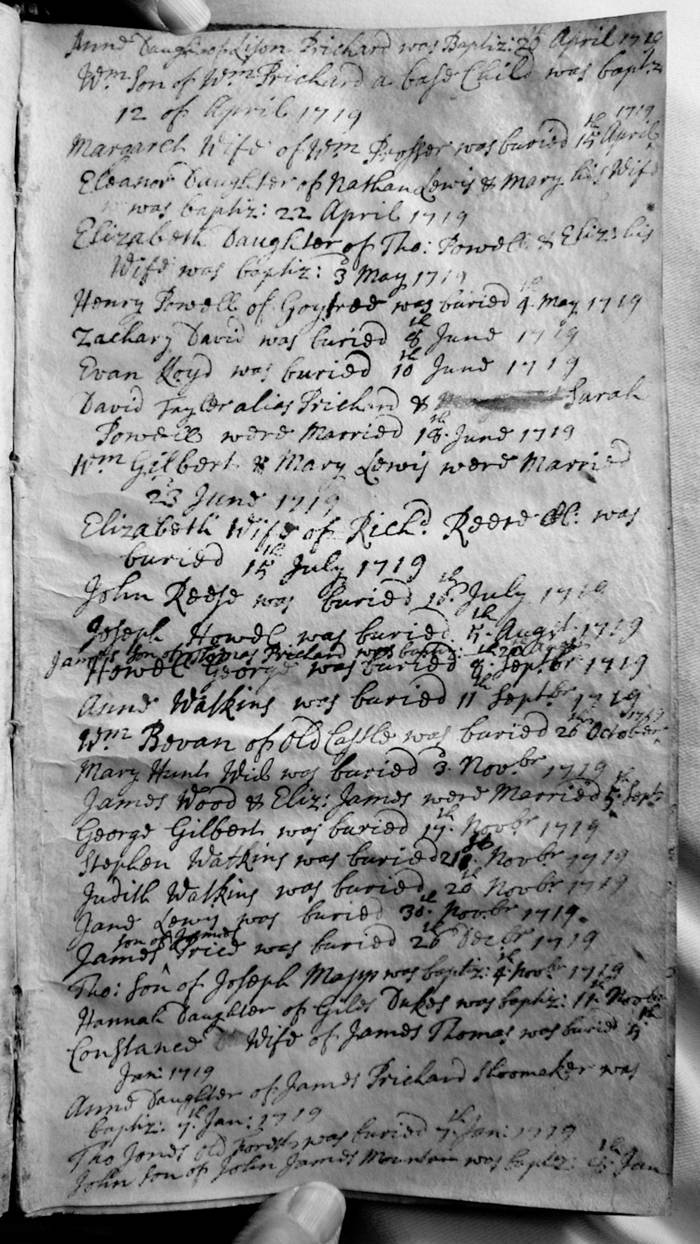 Anne Daughter of Lison Prichard was Baptiz: 26 April 1719
Wm. Son of Wm Prichard a base Child was baptiz
12 of April 1719
Margaret Wife of Wm Prosser was buried 15th April 1719
Eleanor Daughter of Nathan Lewis & Mary his Wife
was baptiz: 22 April 1719
Elizabeth Daughter of Tho: Powell & Eliz: his
Wife was baptiz: 3 May 1719
Henry Powell of Goytree was buried 4th May 1719
Zachary David was buried 8th June 1719
Evan Lloyd was buried 10th June 1719
David Taylor alias Prichard & Sarah
Powell were Married 18th June 1719
Wm Gilbert & Mary Lewis were Married
23 June 1719
Elizabeth Wife of Richd. Reese was
buried 15th July 1719
John Reese was buried July 1719
Joseph Howel was buried Augst 1719
James Son of Thomas Prichard was baptiz:
Howel George was buried Septbr 1719
Anne Watkins was buried 11th Septbr 1719
Wm Bevan of Old Castle was buried 26th October 1719
Mary Hunt Wid was buried 3 Novbr 1719
James Wood & Eliz: James were Married 5th Septr
George Gilbert was buried 17th Novbr 1719
Stephen Watkins was buried Novbr 1719
Judith Watkins was buried 20th Novbr 1719
Jane Lewis was buried 30th Novbr 1719
son of James
James Price was buried 26th Decbr 1719
Tho: Son of Joseph Mapp was baptiz: 4th Novbr 1719
Hannah Daughter of Giles Dukes was baptiz: 11th Novbr
Constance Wife of James Thomas was buried 5th
Jan: 1719
Anne Daughter of James Prichard Shoomaker was
baptiz: Jan: 1719
Tho Jones old forest was buried 7th Jan: 1719
John Son of John James Mountain was baptiz: Jan